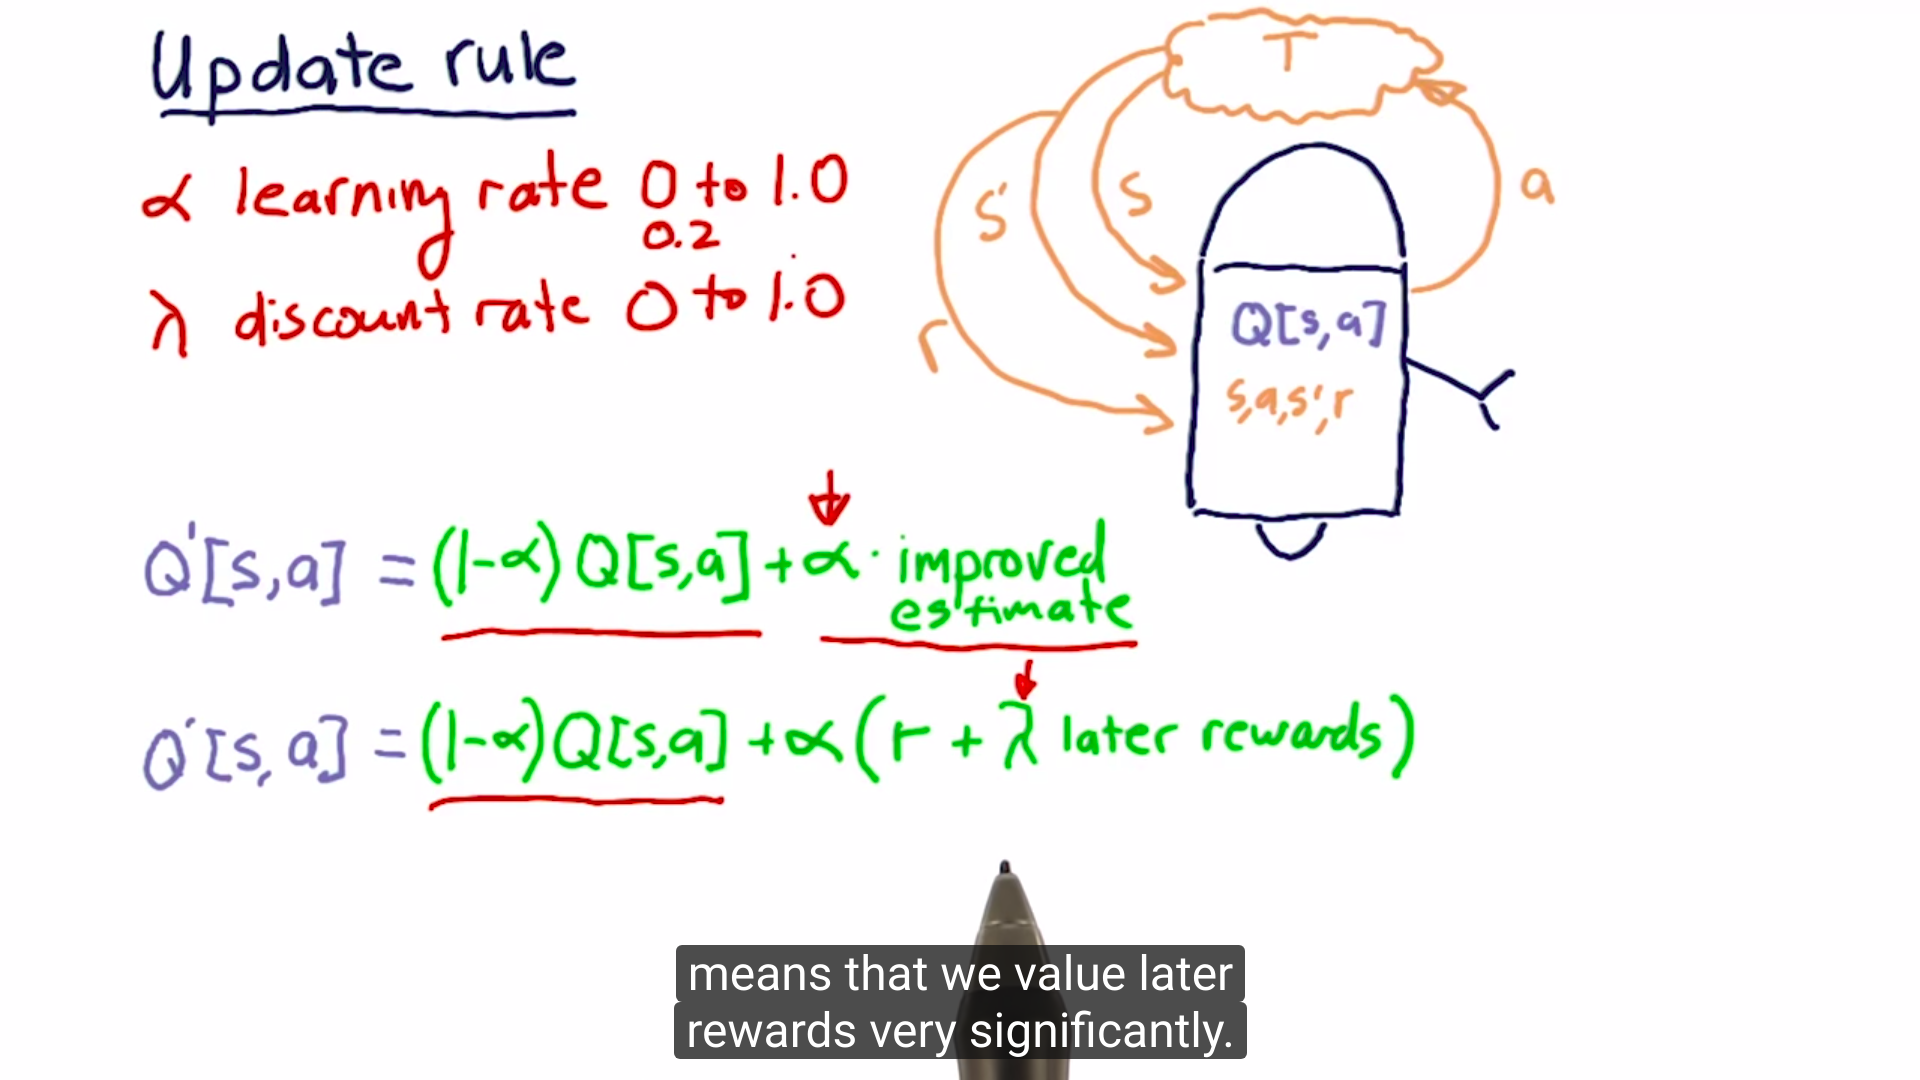 Update rule
α learning rate 0 to 1.0
0.2
λ discount rate 0 to 1.0
T
s'
s
a
r
Q[s,a]
s,a,s',r
Q'[s,a] = (1-α) Q[s,a] + α · improved
estimate
Q'[s,a] = (1-α) Q[s,a] + α (r + λ later rewards)
means that we value later
rewards very significantly.